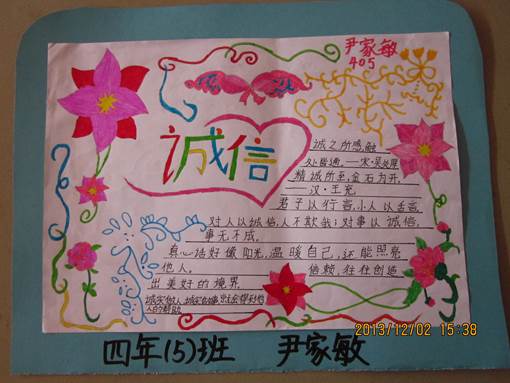 尹家敏
405
诚信
诚之所感触
处皆通。——宋·吴处厚
精诚所至,金石为开。
——汉·王充
君子以行言,小人以舌言。
对人以诚信,人不欺我;对事以诚信,
事无不成。
真心话好像阳光,温暖自己,还能照亮
他人。 信赖,往往创造
出美好的境界
诚实做人
人的帮助
2013/12/02 15:38
四年(5)班 尹家敏